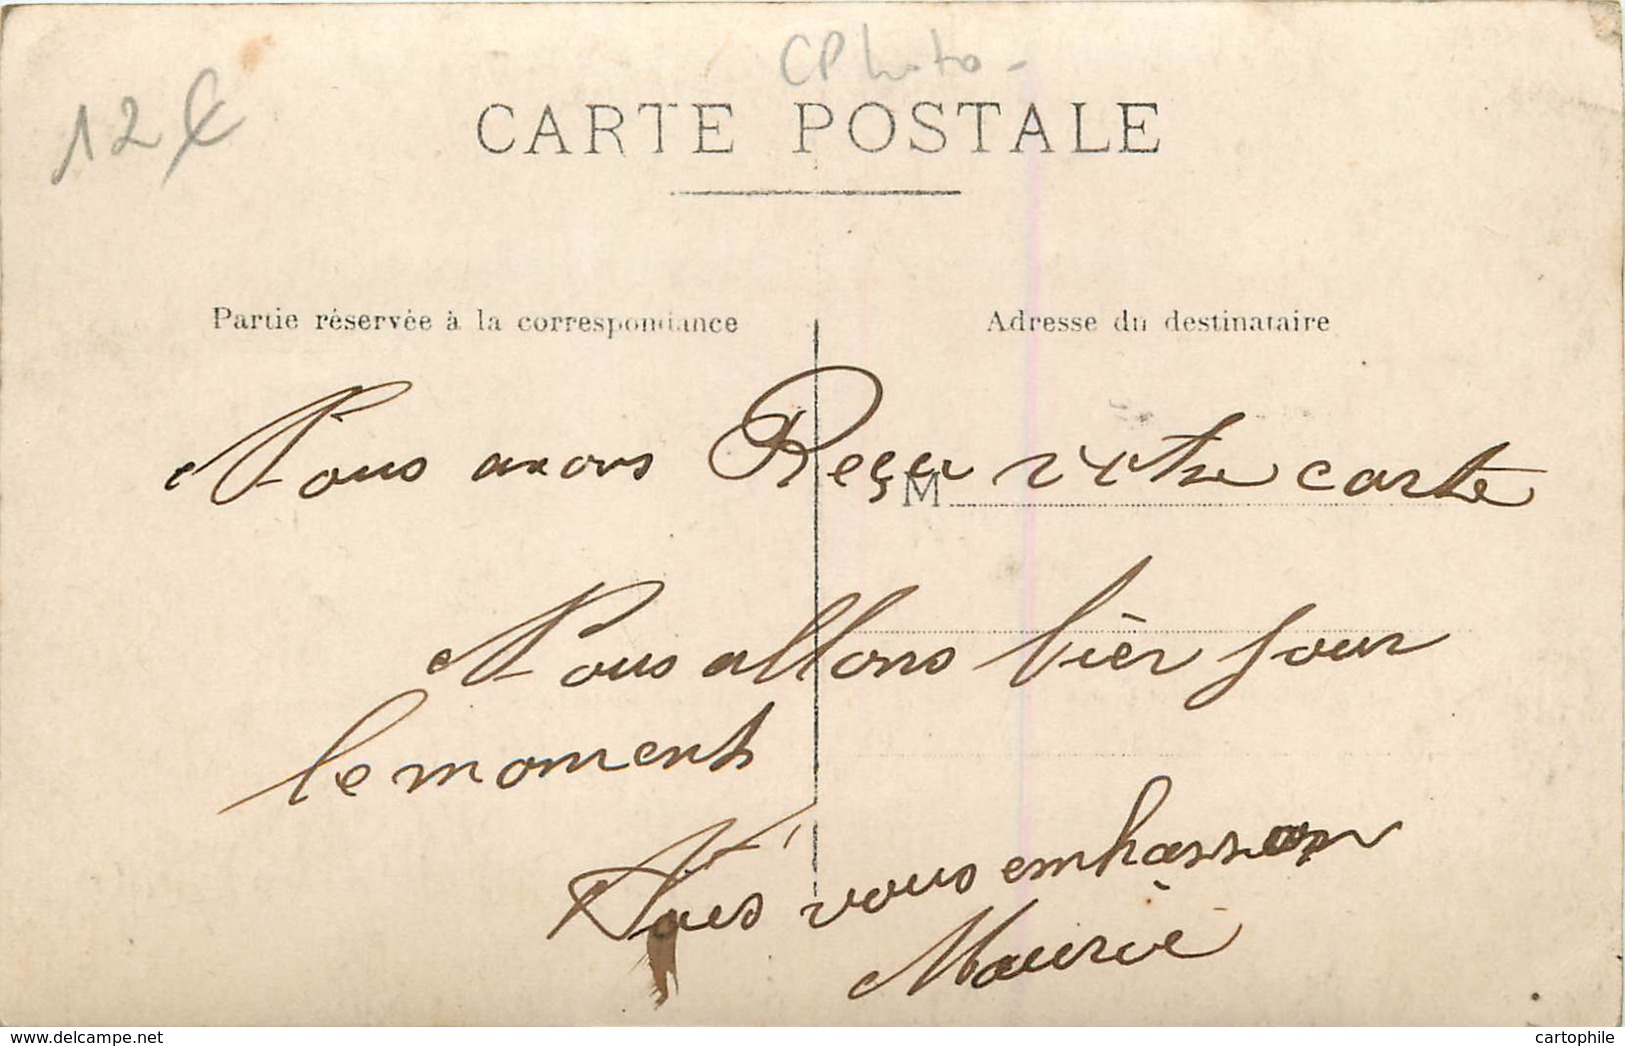 CPhoto -
12€
CARTE POSTALE
Partie réservée à la correspondance
Adresse du destinataire
Nous avons Reçu votre carte
M
Nous allons bien pour
le moment
Nous vous embrassons
Maurice
www.delcampe.net
cartophile